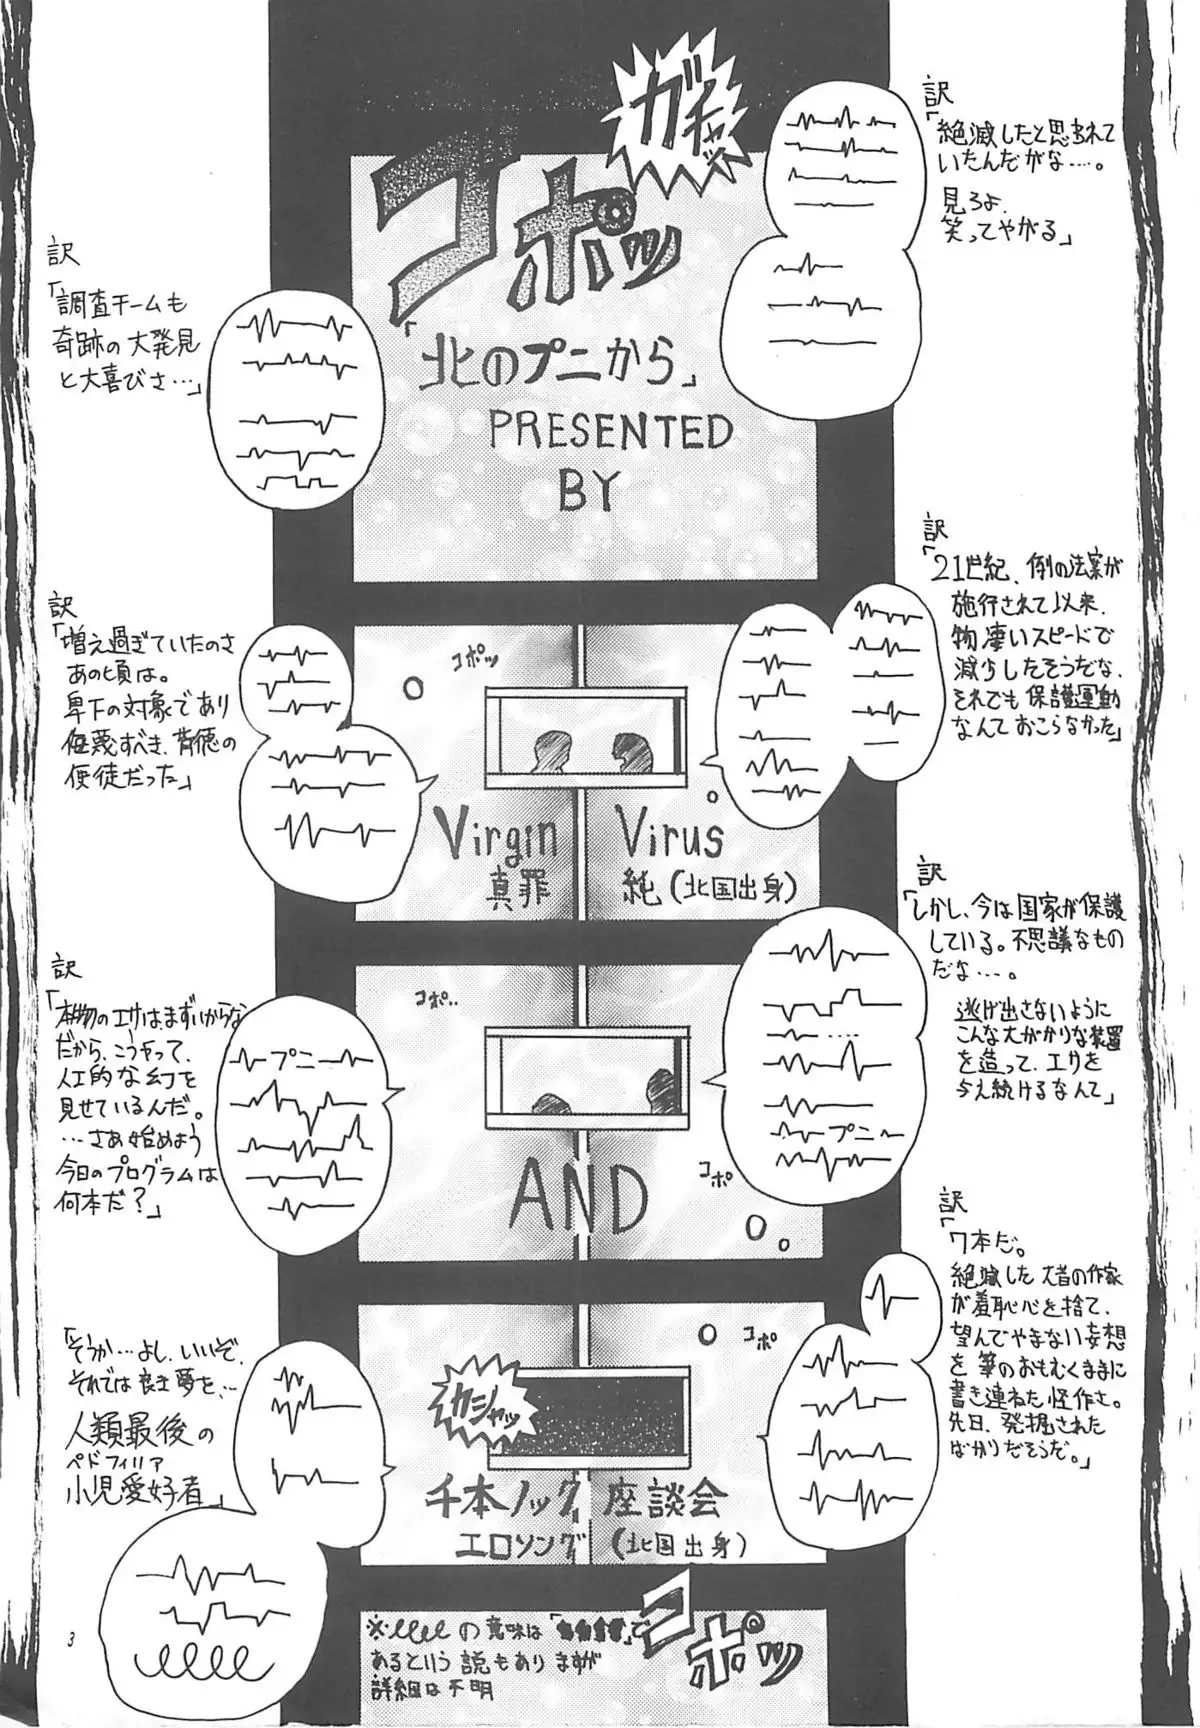 ガチャッ
コポッ
訳
「絶滅したと思われて
いたんだがな‥‥。
見ろよ、
笑ってやがる」
訳
「調査チームも
奇跡の大発見
と大喜びさ…」
「北のプニから」
PRESENTED
BY
訳
「21世紀、例の法案が
施行されて以来、
物凄いスピードで
減少したそうだな、
それでも保護運動
なんておこらなかった」
訳
「増え過ぎていたのさ
あの頃は。
卑下の対象であり
侮蔑すべき、背徳の
使徒だった」
コポッ
Virgin Virus
真罪 純(北国出身)
訳
「しかし、今は国家が保護
している。不思議なもの
だな‥‥。
逃げ出さないように
こんな大がかりな装置
を造って、エサを
与え続けるなんて」
プニ
訳
「本物のエサはまずいからな
だから、こうやって、
人工的な幻を
見せているんだ。
…さあ始めよう
今日のプログラムは
何本だ?」
プニ
コポ‥
コポ
AND
訳
「7本だ。
絶滅した太古の作家
が羞恥心を捨て、
望んでやまない妄想
を筆のおもむくままに
書き連ねた怪作さ。
先日、発掘された
ばかりだそうだ。」
「そうか…よし、いいぞ、
それでは良き夢を、‥
人類最後の
ペドフィリア
小児愛好者」
コポ
カシャッ
千本ノック座談会
エロソング(北国出身)
コポッ
※ の意味は「 」で
あるという説もありますが
詳細は不明
3